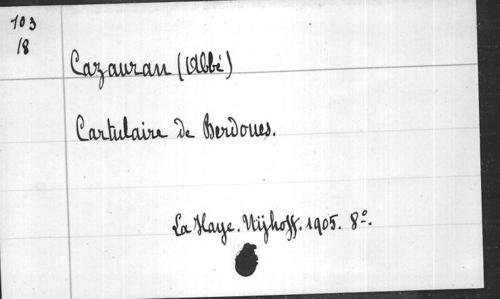 103
18
Cazauran (Abbé)
Cartulaire de Berdoues.
La Haye. Nijhoff. 1905. 8°.